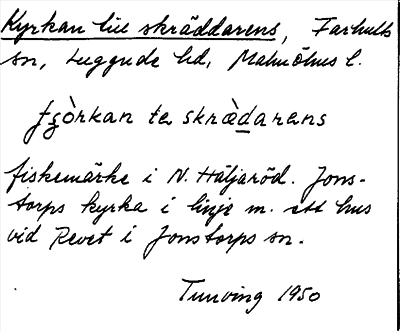 Kyrkan till skräddarens, Farhults
sn, Luggude hd, Malmöhus l.
skrä̀darens
fiskemärke i N. Häljaröd. Jons-
torps kyrka i linje m. ett hus
vid Revet i Jonstorps sn.
Tunving 1950